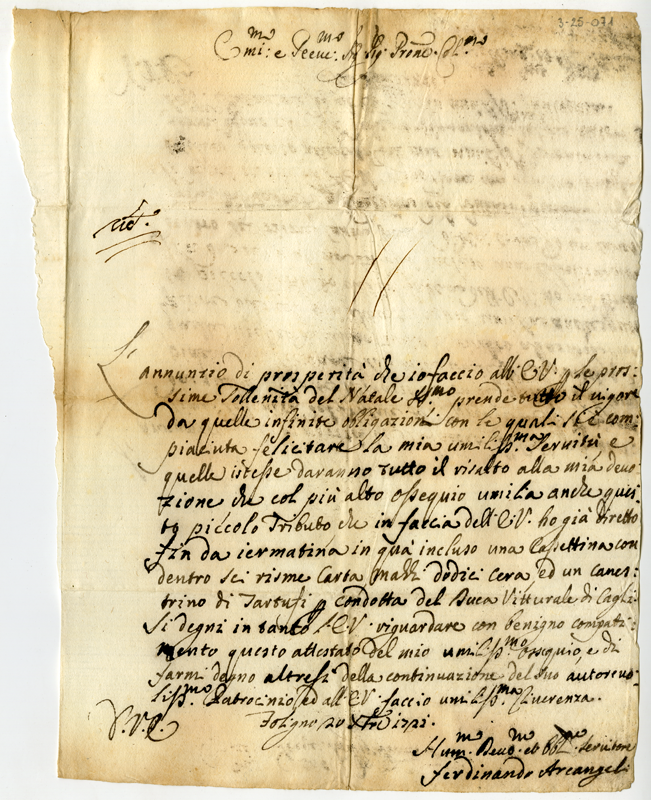 3-25-071
Em:mo e Reeve: Sig. Prone. Col:mo
L'annunzio di prosperità che io faccio all'E.V. p le pros=
sime sollenità del Natale Ssmo prende tutto il vigore
da quelle infinite obligazioni con le quali si è com=
piaciuta felicitare la mia umiliss:ma servitù e
quelle istesse daranno tutto il risalto alla mia devo
zione che col più alto ossequio umilia anche ques=
to piccolo Tributo che in faccia dell'E.V. ho già diretto
fin da iermatina in quà incluso una Cassettina con
dentro sei risme Carta mazzi dodici cera, ed un canes=
trino di Tartufi p condotta del Buca Vitturale di Cagli
Si degni in tanto l'E.V. riguardare con benigno compati=
mento questo attestato del mio umiliss:mo ossequio, e di
farmi degno altresì della continuazione del suo autorevo=
liss:mo Patrocinio, ed all'E.V. faccio umiliss:ma Riverenza.
Foligno 20 Xbre 1721.
Hum:mo Devo:mo et Obl:mo servitore
Ferdinando Arcangeli